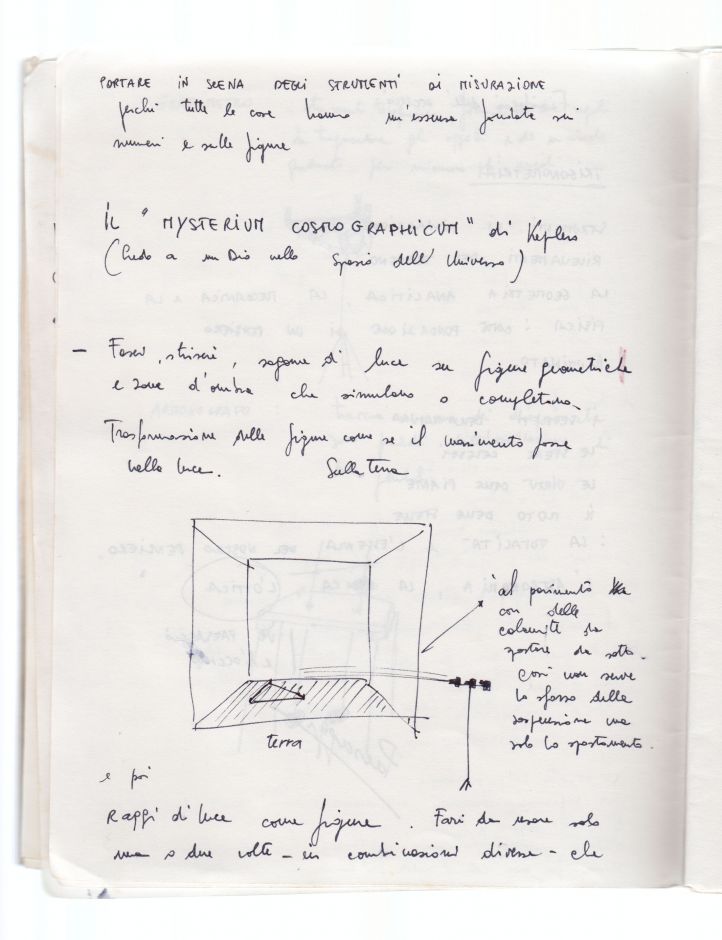 PORTARE IN SCENA DEGLI STRUMENTI DI MISURAZIONE
perché tutte le cose hanno un'essenza fondata sui
numeri e sulle figure
IL "MYSTERIUM COSMOGRAPHICUM" di Keplero
(Chiedo a un Dio nello spazio dell'Universo)
- Fasci, strisce, sagome di luce su figure geometriche
e zone d'ombra che simulano o completano.
Trasformazione delle figure come se il movimento fosse
nella luce. Sulla terra
al pavimento
con delle
calamite da
spostare da sotto.
Così non serve
lo sfasso della
sospensione ma
solo lo spostamento.
terra
e poi
Raggi di luce come figure. Fari da usare solo
una o due volte - in combinazioni diverse - che